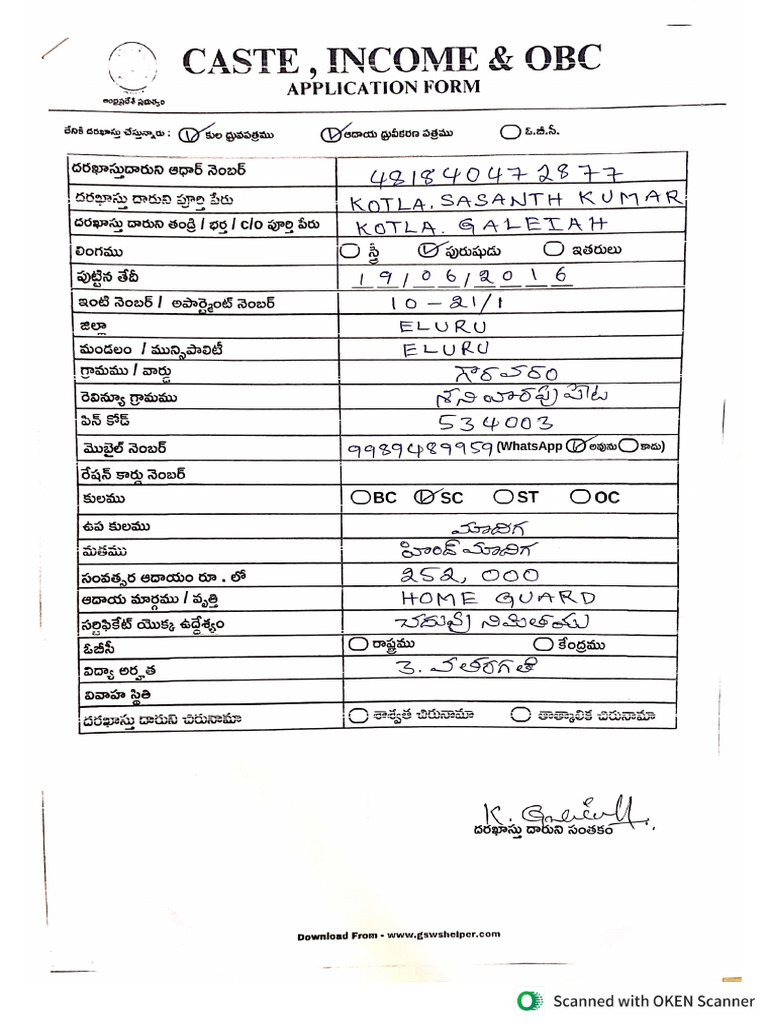 CASTE , INCOME & OBC
APPLICATION FORM
ఆంధ్రప్రదేశ్ ప్రభుత్వం
దేనికి దరఖాస్తు చేస్తున్నారు : కుల ధ్రువపత్రము ఆదాయ ధ్రువీకరణ పత్రము ఓ.బి.సి.
దరఖాస్తుదారుని ఆధార్ నెంబర్ 481840472877
దరఖాస్తు దారుని పూర్తి పేరు KOTLA. SASANTH KUMAR
దరఖాస్తు దారుని తండ్రి / భర్త / c/o పూర్తి పేరు KOTLA. GALEIAH
లింగము స్త్రీ పురుషుడు ఇతరులు
పుట్టిన తేదీ 19/06/2016
ఇంటి నెంబర్ / అపార్ట్మెంట్ నెంబర్ 10-21/1
జిల్లా ELURU
మండలం / మున్సిపాలిటీ ELURU
గ్రామము / వార్డు గౌరవరం
రెవిన్యూ గ్రామము శనివారపు పేట
పిన్ కోడ్ 534003
మొబైల్ నెంబర్ 9989489959 (WhatsApp అవును కాదు)
రేషన్ కార్డు నెంబర్
కులము BC SC ST OC
ఉప కులము మాదిగ
మతము హింద్ మాదిగ
సంవత్సర ఆదాయం రూ . లో 252,000
ఆదాయ మార్గము / వృత్తి HOME GUARD
సర్టిఫికేట్ యొక్క ఉద్దేశ్యం చదువు నిమితము
ఓబీసీ రాష్ట్రము కేంద్రము
విద్యా అర్హత 3. వతరగతి
వివాహ స్థితి
దరఖాస్తు దారుని చిరునామా శాశ్వత చిరునామా తాత్కాలిక చిరునామా
దరఖాస్తు దారుని సంతకం
Download From - www.gswshelper.com
Scanned with OKEN Scanner